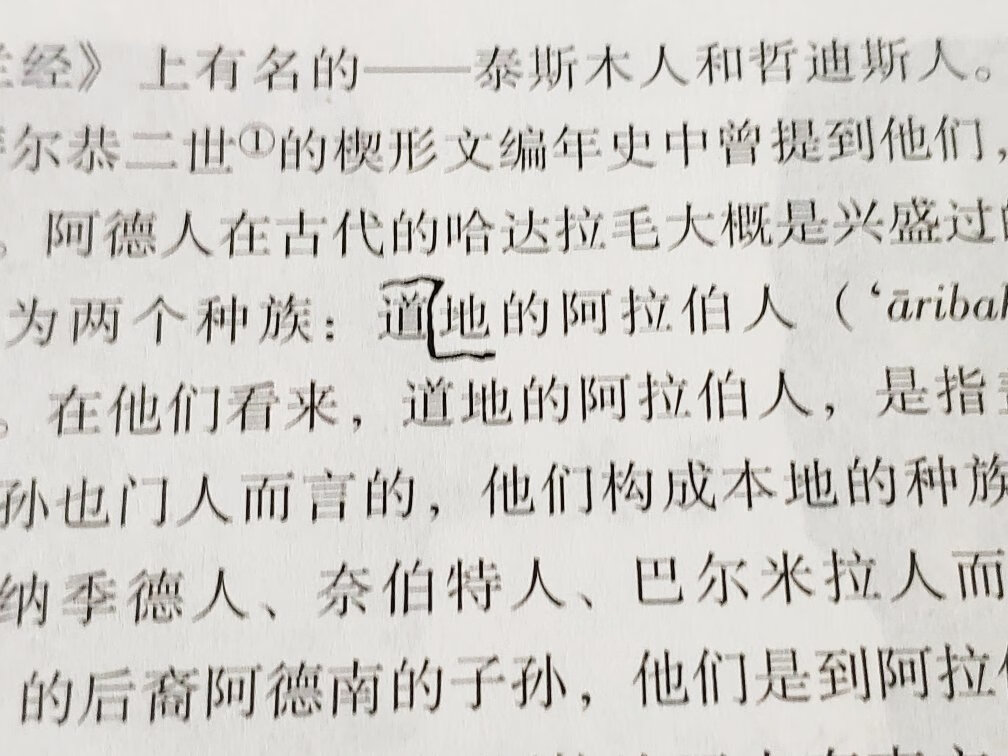 经》上有名的——泰斯木人和哲迪斯人。
尔恭二世①的楔形文编年史中曾提到他们，
。阿德人在古代的哈达拉毛大概是兴盛过
为两个种族：道地的阿拉伯人（‘āribah
。在他们看来，道地的阿拉伯人，是指
孙也门人而言的，他们构成本地的种族
纳季德人、奈伯特人、巴尔米拉人而
的后裔阿德南的子孙，他们是到阿拉